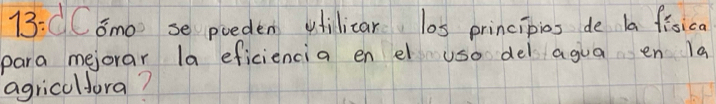 13: ¿Cómo se pueden utilizar los principios de la física
para mejorar la eficiencia en el uso del agua en la
agricultura?